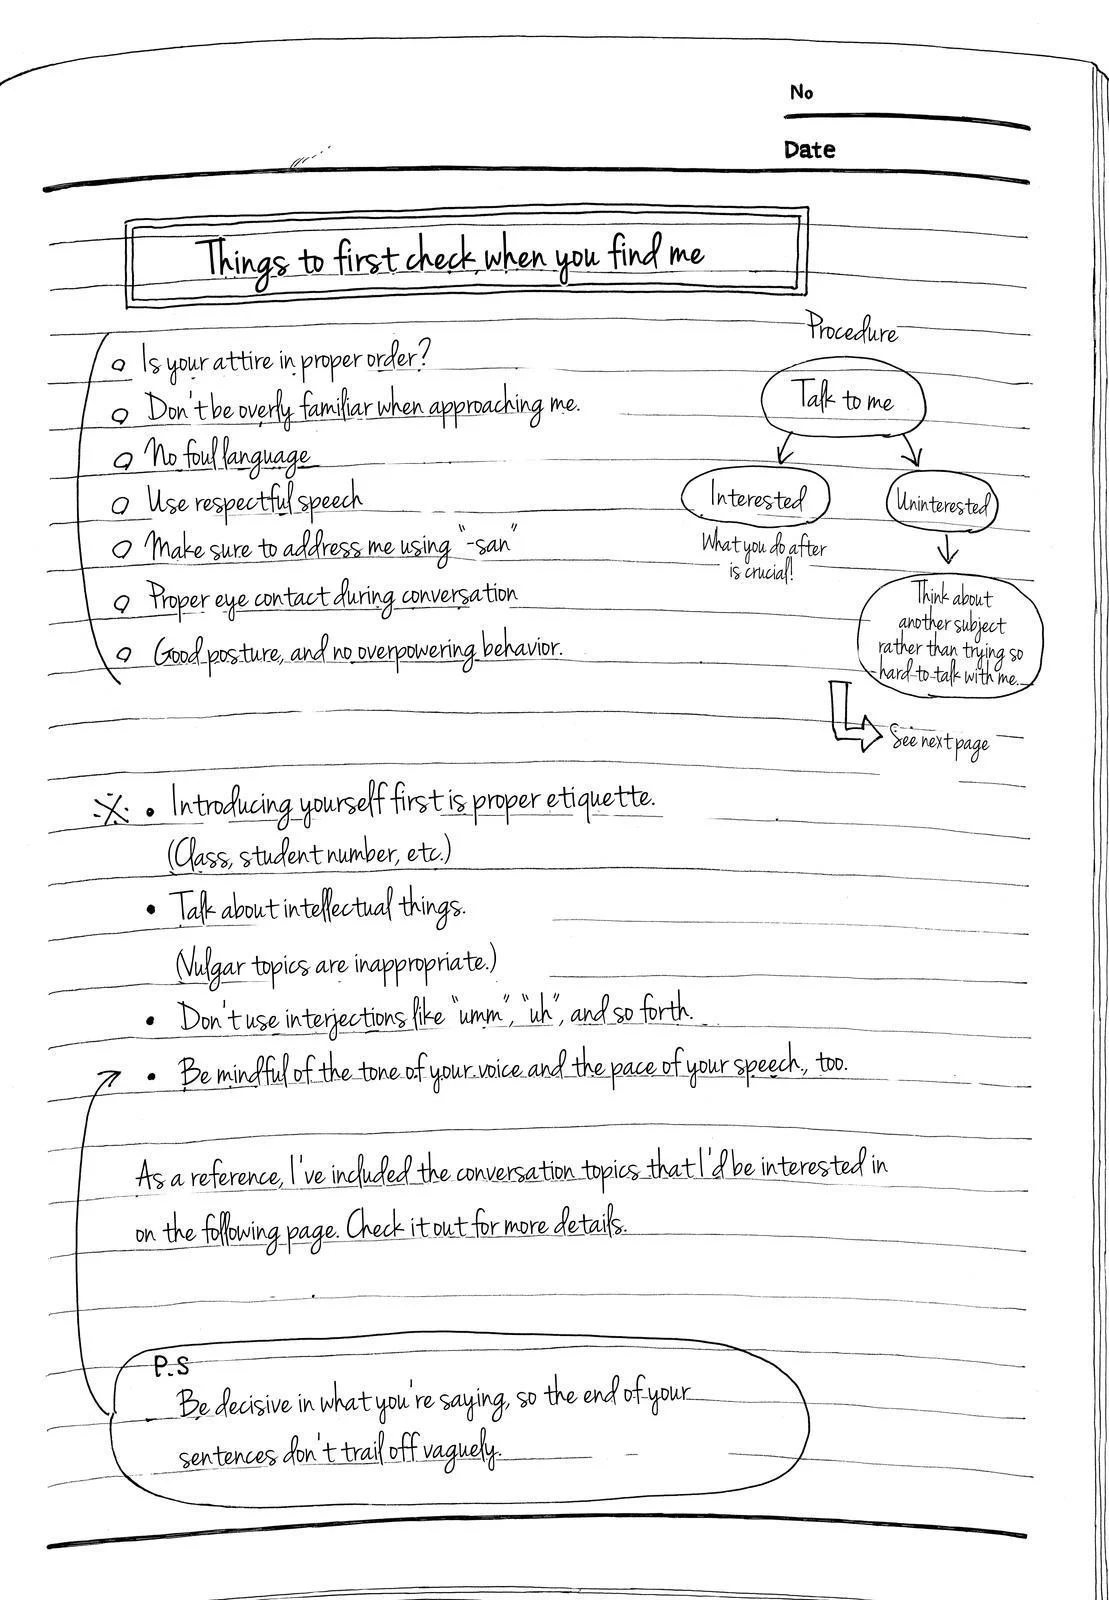 No
Date
Things to first check when you find me
o Is your attire in proper order?
o Don't be overly familiar when approaching me.
o No foul language
o Use respectful speech
o Make sure to address me using "-san"
o Proper eye contact during conversation
o Good posture, and no overpowering behavior.
Procedure
Talk to me
Interested
Uninterested
What you do after
is crucial!
Think about
another subject
rather than trying so
hard to talk with me.
See next page
※ • Introducing yourself first is proper etiquette.
(Class, student number, etc.)
• Talk about intellectual things.
(Vulgar topics are inappropriate.)
• Don't use interjections like "umm", "uh", and so forth.
• Be mindful of the tone of your voice and the pace of your speech, too.
As a reference, I've included the conversation topics that I'd be interested in
on the following page. Check it out for more details.
P.S
Be decisive in what you're saying, so the end of your
sentences don't trail off vaguely.